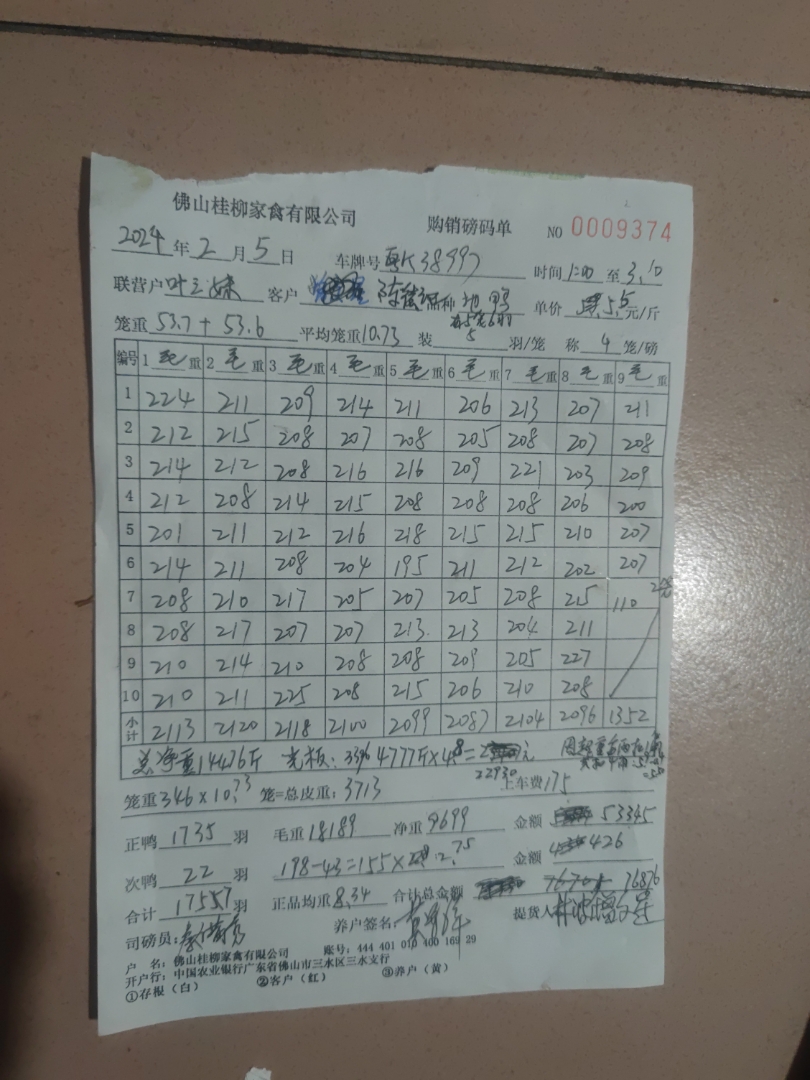 佛山桂柳家禽有限公司 购销磅码单 NO 0009374
2024 年 2 月 5 日 车牌号 粤K38997 时间 1:00 至 3:10
联营户 叶三妹 客户 品种 鸭 单价 5.5 元/斤
笼重 53.7+53.6 平均笼重 10.73 装 5 羽/笼 称 4 笼/磅
编号 1 毛重 2 毛重 3 毛重 4 毛重 5 毛重 6 毛重 7 毛重 8 毛重 9 毛重
1 224 211 209 214 211 206 213 207 211
2 212 215 208 207 208 205 208 207 208
3 214 212 208 216 216 209 221 203 209
4 212 208 214 215 208 208 208 206 200
5 201 211 212 216 218 215 215 210 207
6 214 211 208 204 195 211 212 202 207
7 208 210 217 205 207 205 208 215 110
8 208 217 207 207 213 213 204 211
9 210 214 210 208 208 209 205 227
10 210 211 225 208 215 206 210 208
小计 2113 2120 2118 2100 2099 2087 2104 2096 1352
总净重14476斤 光板:33% 4777斤×4.8= 元
22930
笼重 346×10.73 笼=总皮重: 3713 上车费 175
正鸭 1735 羽 毛重 18189 净重 9699 金额 53345
次鸭 22 羽 198-43=155× 2.75 金额 426
合计 1757 羽 正品均重 8.34 合计总金额 76876
司磅员: 养户签名: 提货人
户 名: 佛山桂柳家禽有限公司 账号: 444 401 010 400 169 29
开户行: 中国农业银行广东省佛山市三水区三水支行
①存根(白) ②客户(红) ③养户(黄)